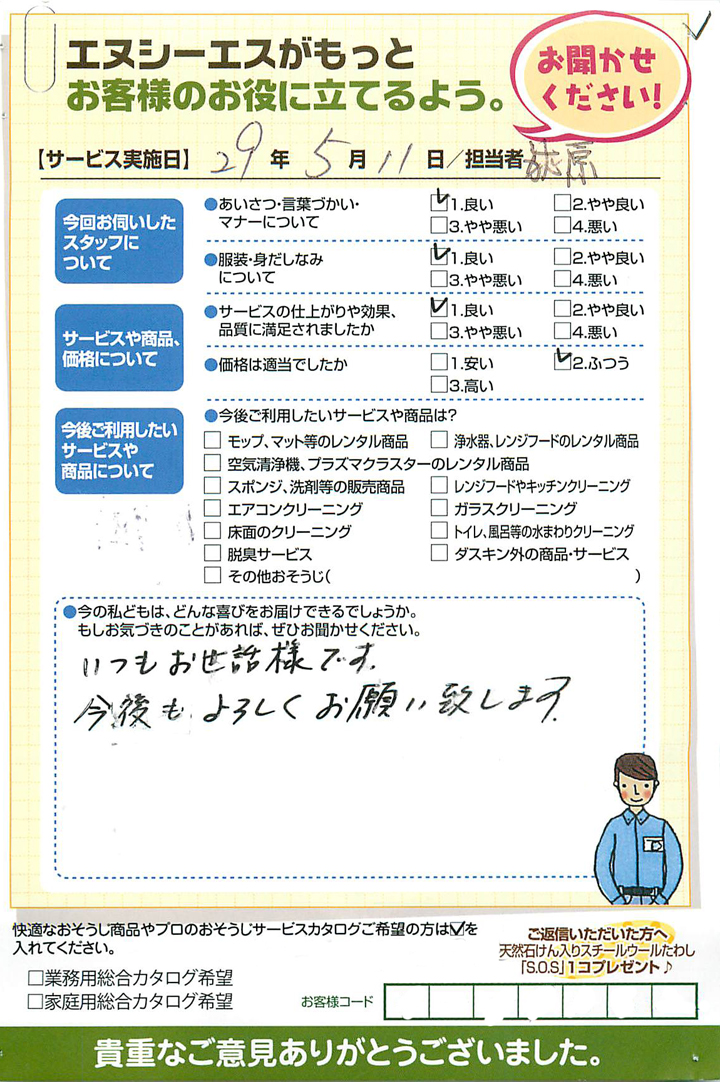 エヌシーエスがもっと
お客様のお役に立てるよう。
お聞かせ
ください!
【サービス実施日】 29 年 5 月 11 日/担当者 萩原
今回お伺いした
スタッフに
ついて
●あいさつ・言葉づかい・
マナーについて
☑1.良い □2.やや良い
□3.やや悪い □4.悪い
●服装・身だしなみ
について
☑1.良い □2.やや良い
□3.やや悪い □4.悪い
サービスや商品、
価格について
●サービスの仕上がりや効果、
品質に満足されましたか
☑1.良い □2.やや良い
□3.やや悪い □4.悪い
●価格は適当でしたか
□1.安い ☑2.ふつう
□3.高い
今後ご利用したい
サービスや
商品について
●今後ご利用したいサービスや商品は?
□ モップ、マット等のレンタル商品 □ 浄水器、レンジフードのレンタル商品
□ 空気清浄機、プラズマクラスターのレンタル商品
□ スポンジ、洗剤等の販売商品 □ レンジフードやキッチンクリーニング
□ エアコンクリーニング □ ガラスクリーニング
□ 床面のクリーニング □ トイレ、風呂等の水まわりクリーニング
□ 脱臭サービス □ ダスキン外の商品・サービス
□ その他おそうじ( )
●今の私どもは、どんな喜びをお届けできるでしょうか。
もしお気づきのことがあれば、ぜひお聞かせください。
いつもお世話様です.
今後も よろしくお願い致します.
快適なおそうじ商品やプロのおそうじサービスカタログご希望の方は☑を
入れてください。
□業務用総合カタログ希望
□家庭用総合カタログ希望
ご返信いただいた方へ
天然石けん入りスチールウールたわし
「S.O.S」1コプレゼント♪
お客様コード
貴重なご意見ありがとうございました。